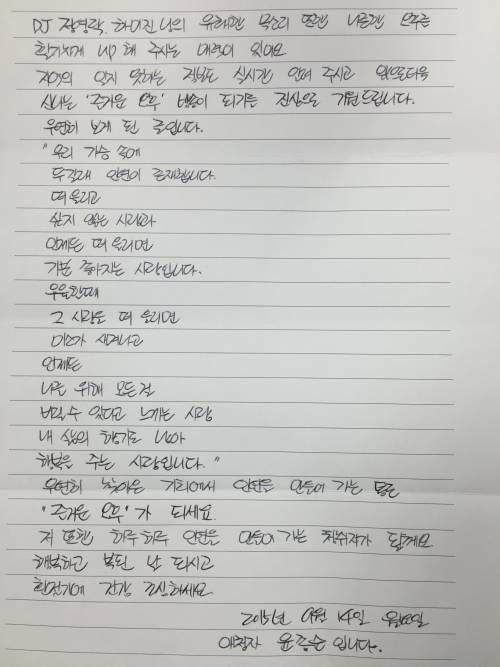 DJ 장영락, 하이진 님의 유쾌한 목소리 따라 나른한 오후를
활기차게 up 해 주시는 매력이 있어요
지역의 잊지 못하는 정보도 실시간 안내 주시고 앞으로 더욱
신나는 '즐거운 오후' 방송이 되기를 진심으로 기원드립니다.
우연히 보게 된 글입니다.
"우리 가슴 속에
두갈래 인연이 존재합니다.
떠올리고
싶지 않은 사람과
언제든 떠 올리면
기분 좋아지는 사람입니다.
우울할때
그 사람을 떠 올리면
미소가 생겨나고
언제든
나를 위해 모든걸
버릴수 있다고 느끼는 사람
내 삶의 향기로 남아
행복을 주는 사람입니다."
우연히 찾아온 기회에서 인연을 만들어 가는
"즐거운 오후"가 되세요.
저 또한 하루 하루 인연을 만들어 가는 청취자가 될께요
행복하고 복된 날 되시고
환절기에 건강 조심하세요
2015년 9월 14일 월요일
애청자 윤종순 입니다.